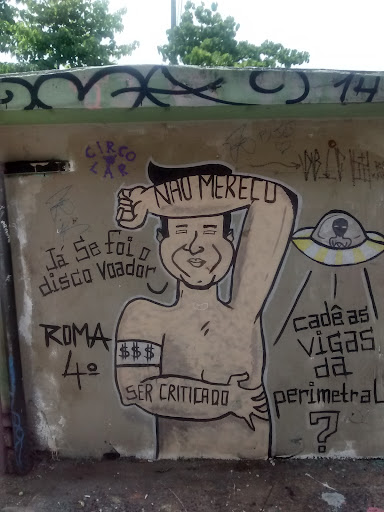 14
CIRCO
LAR
NÃO MEREÇO
Já Se foi o
disco voador
ROMA
4º
$$$
SER CRITICADO
cadê as
vigas
da
perimetral
?